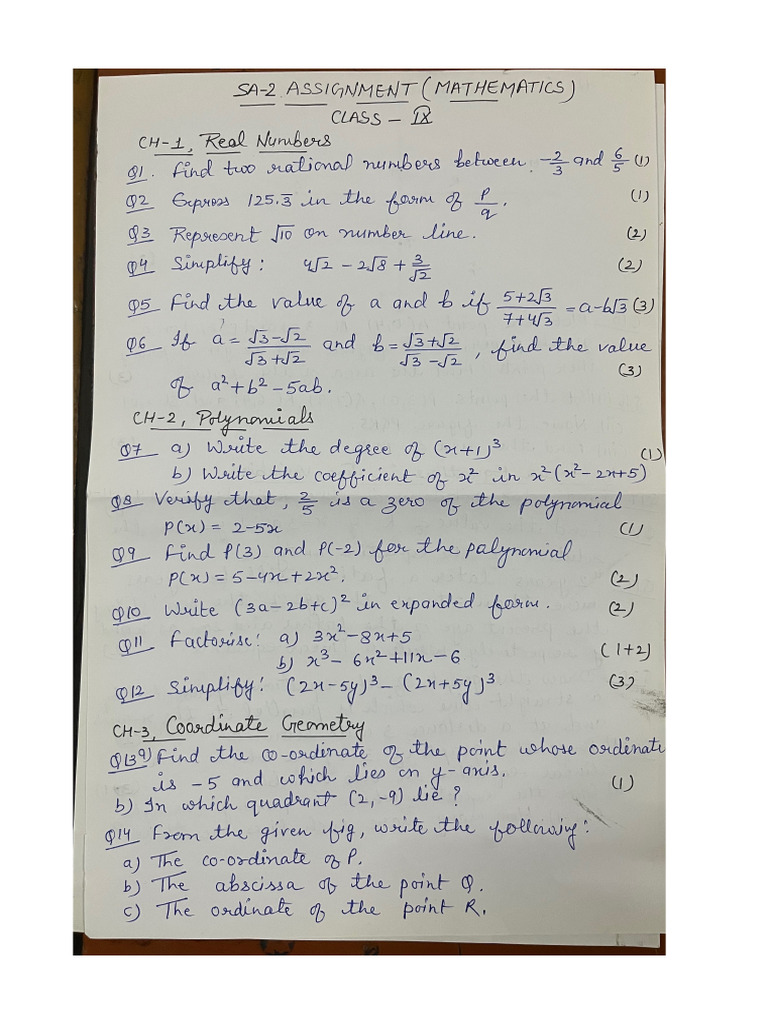 SA-2 ASSIGNMENT (MATHEMATICS)
CLASS - IX
CH-1, Real Numbers
Q1. Find two rational numbers between -2/3 and 6/5 (1)
Q2 Express 125.3̅ in the form of p/q. (1)
Q3 Represent √10 on number line. (2)
Q4 Simplify: 4√2 - 2√8 + 3/√2 (2)
Q5 Find the value of a and b if (5+2√3)/(7+4√3) = a-b√3 (3)
Q6 If a = (√3-√2)/(√3+√2) and b = (√3+√2)/(√3-√2), find the value
of a²+b²-5ab. (3)
CH-2, Polynomials
Q7 a) Write the degree of (x+1)³
b) Write the coefficient of x² in x²(x²-2x+5) (1)
Q8 Verify that, 2/5 is a zero of the polynomial
P(x) = 2-5x (1)
Q9 Find P(3) and P(-2) for the palynomial
P(x) = 5-4x+2x². (2)
Q10 Write (3a-2b+c)² in expanded form. (2)
Q11 Factorise: a) 3x²-8x+5
b) x³-6x²+11x-6 (1+2)
Q12 Simplify: (2x-5y)³-(2x+5y)³ (3)
CH-3, Coordinate Geometry
Q13 a) Find the co-ordinate of the point whose ordinate
is -5 and which lies on y-axis.
b) In which quadrant (2,-9) lie? (1)
Q14 From the given fig, write the following:
a) The co-ordinate of P.
b) The abscissa of the point Q.
c) The ordinate of the point R.